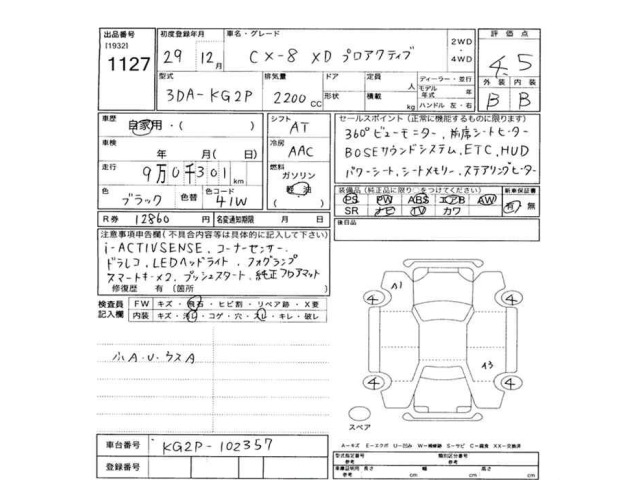 出品番号
[1932]
1127
初度登録年月
29年 12月
車名・グレード
CX-8 XD プロアクティブ
2WD
・
4WD
評価点
4.5
外装 内装
B B
型式
3DA-KG2P
排気量
2200 CC
ドア
形状
定員 人
積載 kg
ディーラー・並行
モデル年式 年
ハンドル 左・右
車歴
自家用・( )
車検
年 月(日)
走行
9万0千301km
色
ブラック
色替
カラーNo.
41W
シフト
AT
冷房
AAC
燃料
ガソリン
軽油
R券 12860円 名変通知期限 月 日
セールスポイント(正常に機能するものに限ります)
360°ビューモニター、前席シートヒーター
BOSEサウンドシステム、ETC、HUD
パワーシート、シートメモリー、ステアリングヒーター
装備品(純正品に限り○をつけてください)
PS PW ABS エアB AW
SR ナビ TV カワ
新車保証書
有・無
後日品
注意事項申告欄(不具合内容等は具体的に記入して下さい)
i-ACTIVSENSE、コーナーセンサー、
ドラレコ、LEDヘッドライト、フォグランプ
スマートキー×2、プッシュスタート、純正フロアマット
修復歴 有(箇所
検査員
記入欄
FW キズ・飛石・ヒビ割・リペア跡・X要
内装 キズ・汚レ・コゲ・穴・スレ・キレ・破レ
小A・U・ウスA
A1
A3
4
4
4
4
スペア
A－キズ E－エクボ U－凹み W－補修跡 S－サビ C－腐食 XX－交換済
車台番号 KG2P-102357
登録番号
型式指定番号
参考
類別区分番号
参考
車庫証明用
参考
長さ cm 幅 cm 高さ cm